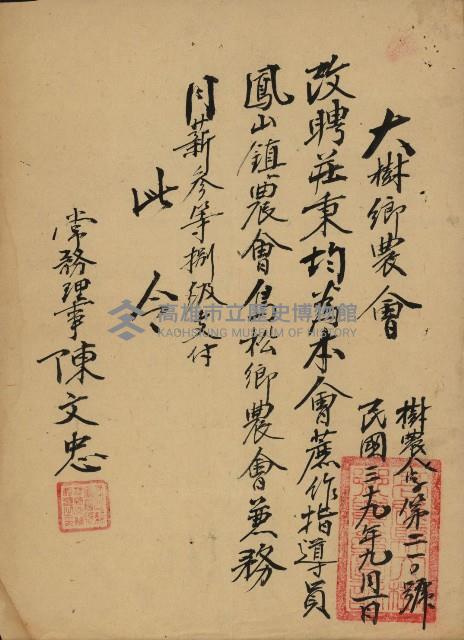 大樹鄉農會
樹農人字第二一〇號
民國三十九年九月一日
改聘莊秉均為本會蔗作指導員
鳳山鎮農會鳥松鄉農會兼務
月薪參等捌級支付
此令
常務理事陳文忠
高雄市立歷史博物館
KAOHSIUNG MUSEUM OF HISTORY